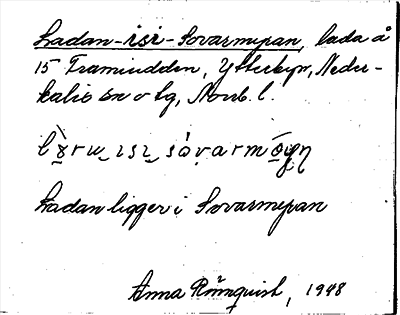 Ladan-isi-Sovarmyran, lada å
15 Framudden, Ytterbyn, Neder-
kalix sn o tg, Norrb. l.
Ladan ligger i Sovarmyran
Anna Rönnquist, 1948